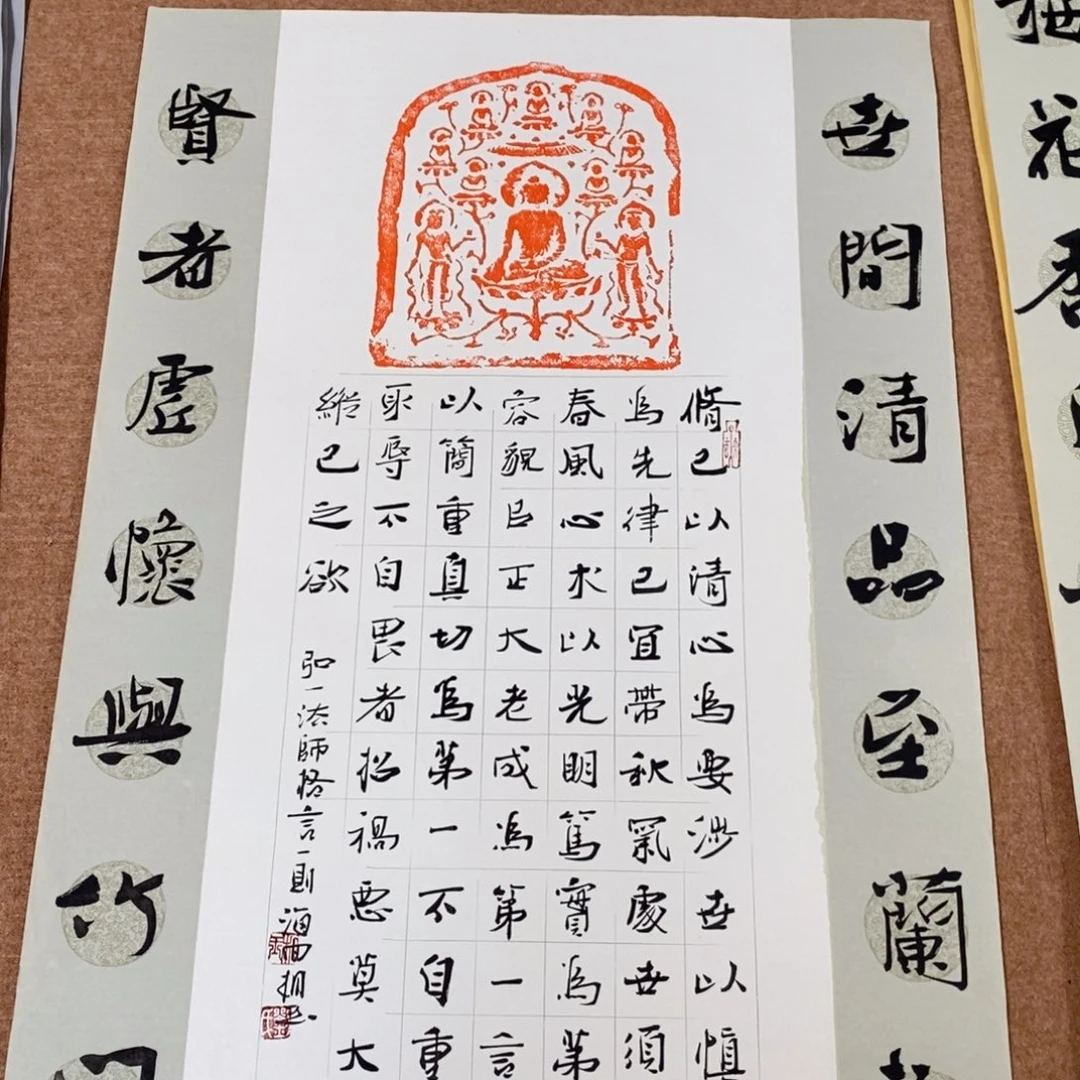 花香
世間清品至蘭
脩己以清心為要涉世以慎
為先律己宜帶秋氣處世須
春風心术以光明篤實為第
容貌以正大老成為第一言
以簡重真切為第一不自重
取辱不自畏者招禍惡莫大
縱己之欲
弘一法師格言一則
賢者虛懷與竹